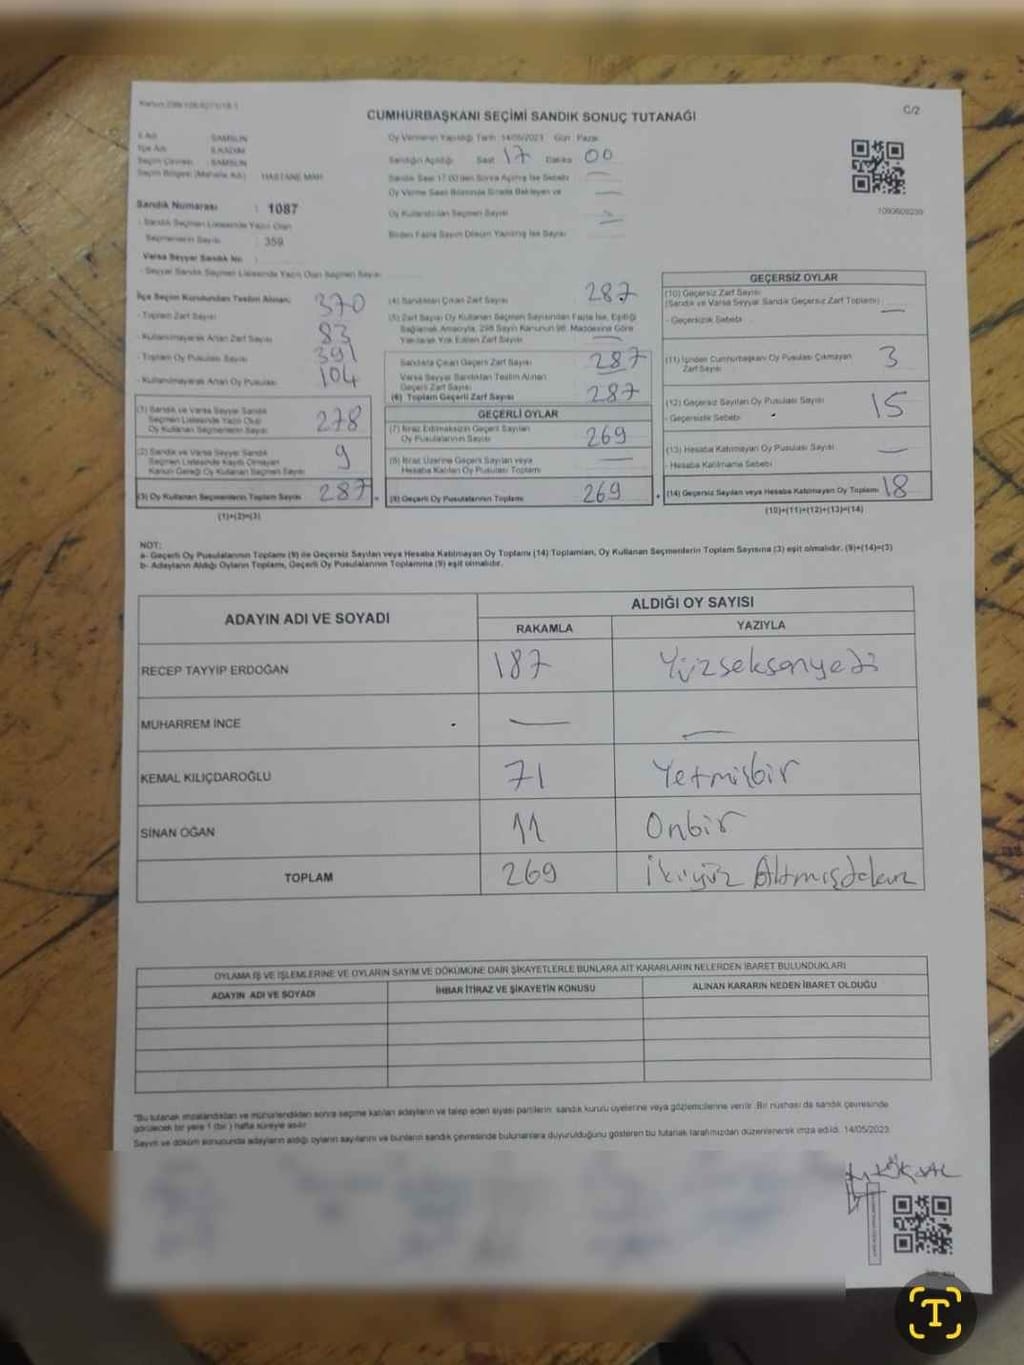 CUMHURBAŞKANI SEÇİMİ SANDIK SONUÇ TUTANAĞI
C/2
İl Adı : SAMSUN
İlçe Adı : İLKADIM
Seçim Çevresi : SAMSUN
Seçim Bölgesi (Mahalle Adı) : HASTANE MAH
Sandık Numarası : 1087
- Sandık Seçmen Listesinde Yazılı Olan
Seçmenlerin Sayısı : 359
Varsa Seyyar Sandık No :
- Seyyar Sandık Seçmen Listesinde Yazılı Olan Seçmen Sayısı
Oy Vermenin Yapıldığı Tarih: 14/05/2023 Gün: Pazar
Sandığın Açıldığı Saat 17 Dakika 00
Sandık Saat 17:00'den Sonra Açılmış İse Sebebi
Oy Verme Saati Bitiminde Sırada Bekleyen ve
Oy Kullandırılan Seçmen Sayısı
Birden Fazla Sayım Döküm Yapılmış İse Sayısı
İlçe Seçim Kurulundan Teslim Alınan;
- Toplam Zarf Sayısı 370
- Kullanılmayarak Artan Zarf Sayısı 83
- Toplam Oy Pusulası Sayısı 391
- Kullanılmayarak Artan Oy Pusulası 104
(1) Sandık ve Varsa Seyyar Sandık
Seçmen Listesinde Yazılı Olup
Oy Kullanan Seçmenlerin Sayısı 278
(2) Sandık ve Varsa Seyyar Sandık
Seçmen Listesinde Kayıtlı Olmayan
Kanun Gereği Oy Kullanan Seçmen Sayısı 9
(3) Oy Kullanan Seçmenlerin Toplam Sayısı 287
(1)+(2)=(3)
(4) Sandıktan Çıkan Zarf Sayısı 287
(5) Zarf Sayısı Oy Kullanan Seçmen Sayısından Fazla İse, Eşitliği
Sağlamak Amacıyla, 298 Sayılı Kanunun 98. Maddesine Göre
Yakılarak Yok Edilen Zarf Sayısı
Sandıkta Çıkan Geçerli Zarf Sayısı 287
Varsa Seyyar Sandıktan Teslim Alınan
Geçerli Zarf Sayısı
(6) Toplam Geçerli Zarf Sayısı 287
GEÇERLİ OYLAR
(7) İtiraz Edilmeksizin Geçerli Sayılan
Oy Pusulalarının Sayısı 269
(8) İtiraz Üzerine Geçerli Sayılan veya
Hesaba Katılan Oy Pusulası Toplamı
(9) Geçerli Oy Pusulalarının Toplamı 269
GEÇERSİZ OYLAR
(10) Geçersiz Zarf Sayısı
(Sandık ve Varsa Seyyar Sandık Geçersiz Zarf Toplamı)
- Geçersizlik Sebebi
(11) İçinden Cumhurbaşkanı Oy Pusulası Çıkmayan
Zarf Sayısı 3
(12) Geçersiz Sayılan Oy Pusulası Sayısı 15
- Geçersizlik Sebebi
(13) Hesaba Katılmayan Oy Pusulası Sayısı
- Hesaba Katılmama Sebebi
(14) Geçersiz Sayılan veya Hesaba Katılmayan Oy Toplamı 18
(10)+(11)+(12)+(13)=(14)
NOT:
a- Geçerli Oy Pusulalarının Toplamı (9) ile Geçersiz Sayılan veya Hesaba Katılmayan Oy Toplamı (14) Toplamları, Oy Kullanan Seçmenlerin Toplam Sayısına (3) eşit olmalıdır. (9)+(14)=(3)
b- Adayların Aldığı Oyların Toplamı, Geçerli Oy Pusulalarının Toplamına (9) eşit olmalıdır.
ADAYIN ADI VE SOYADI
ALDIĞI OY SAYISI
RAKAMLA YAZIYLA
RECEP TAYYİP ERDOĞAN 187 Yüzseksenyedi
MUHARREM İNCE — —
KEMAL KILIÇDAROĞLU 71 Yetmişbir
SİNAN OĞAN 11 Onbir
TOPLAM 269 İkiyüz Altmışdokuz
OYLAMA İŞ VE İŞLEMLERİNE VE OYLARIN SAYIM VE DÖKÜMÜNE DAİR ŞİKAYETLERLE BUNLARA AİT KARARLARIN NELERDEN İBARET BULUNDUKLARI
ADAYIN ADI VE SOYADI İHBAR İTİRAZ VE ŞİKAYETİN KONUSU ALINAN KARARIN NEDEN İBARET OLDUĞU
*Bu tutanak imzalandıktan ve mühürlendikten sonra seçime katılan adayların ve talep eden siyasi partilerin; sandık kurulu üyelerine veya gözlemcilerine verilir. Bir nüshası da sandık çevresinde
görülecek bir yere 1 (bir) hafta süreyle asılır.
Sayım ve döküm sonucunda adayların aldığı oyların sayılarını ve bunların sandık çevresinde bulunanlara duyurulduğunu gösteren bu tutanak tarafımızdan düzenlenerek imza edildi. 14/05/2023